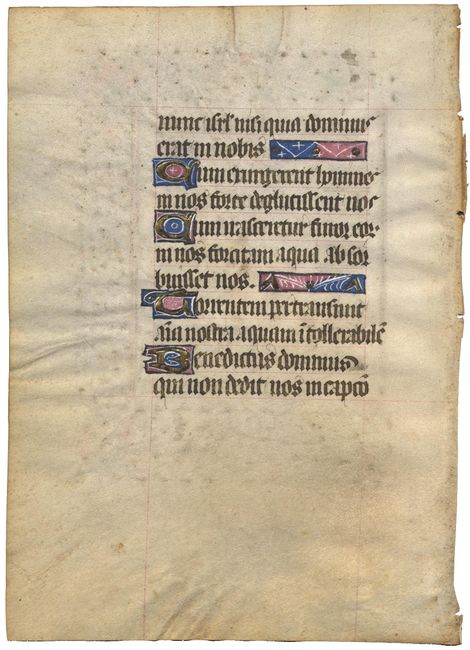 nunc isrl' nisi quia dominus
erat in nobis
Cum exurgerent homines
in nos forte deglucissent nos
Cum irasceretur furor eor
in nos forcitan aqua absor
buisset nos.
Torrentem pertransiuit
aīa nostra aquam ītollerabilē
Benedictus dominus
qui non dedit nos in capcō